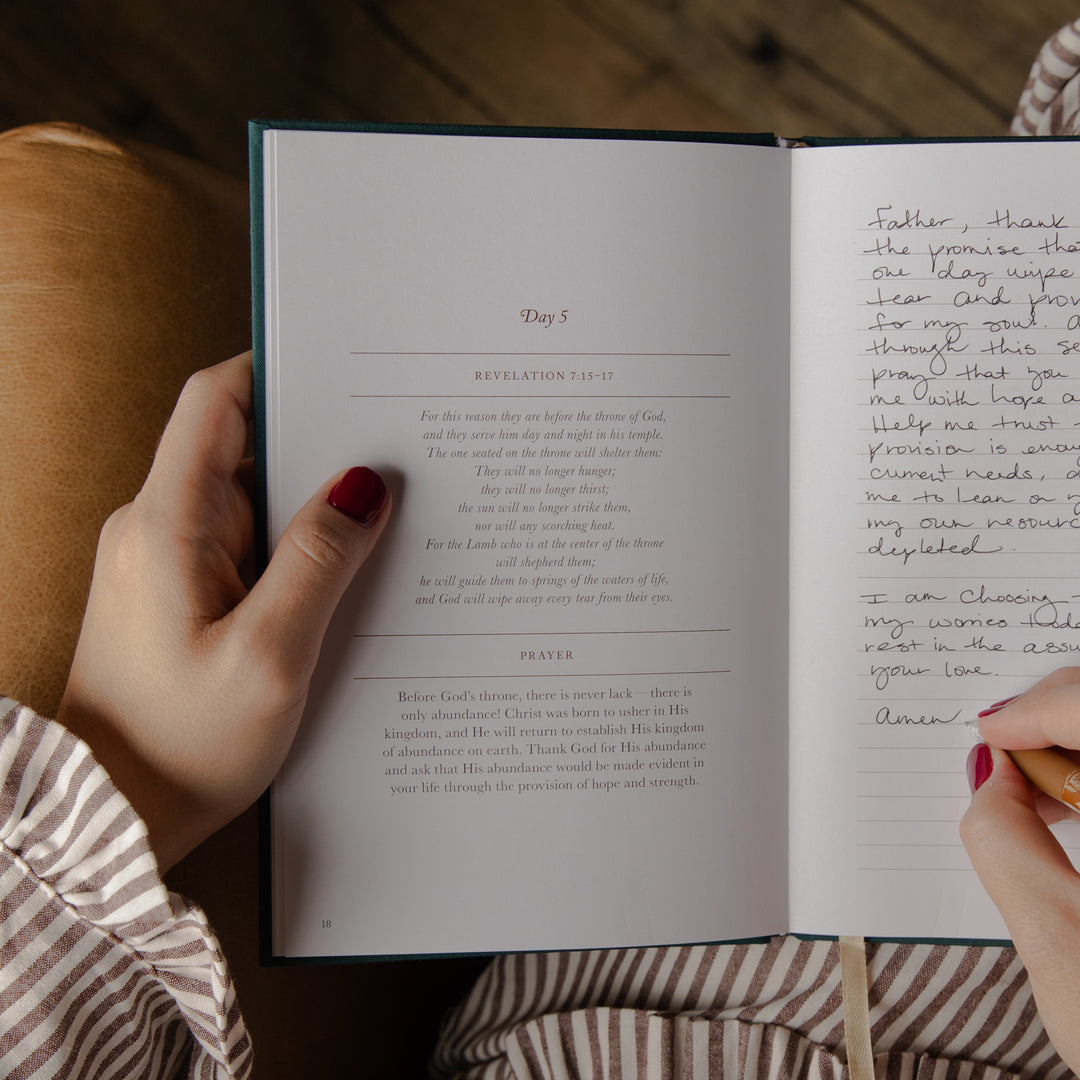 Day 5
REVELATION 7:15–17
For this reason they are before the throne of God,
and they serve him day and night in his temple.
The one seated on the throne will shelter them:
They will no longer hunger;
they will no longer thirst;
the sun will no longer strike them,
nor will any scorching heat.
For the Lamb who is at the center of the throne
will shepherd them;
he will guide them to springs of the waters of life,
and God will wipe away every tear from their eyes.
PRAYER
Before God's throne, there is never lack—there is
only abundance! Christ was born to usher in His
kingdom, and He will return to establish His kingdom
of abundance on earth. Thank God for His abundance
and ask that His abundance would be made evident in
your life through the provision of hope and strength.
18
Father, thank
the promise
one day wipe
tear and
for my soul.
through this
pray that you
me with hope
Help me trust
provision is
current needs,
me to lean on
my own
depleted.
I am choosing
my worries
rest in the
your love.
Amen